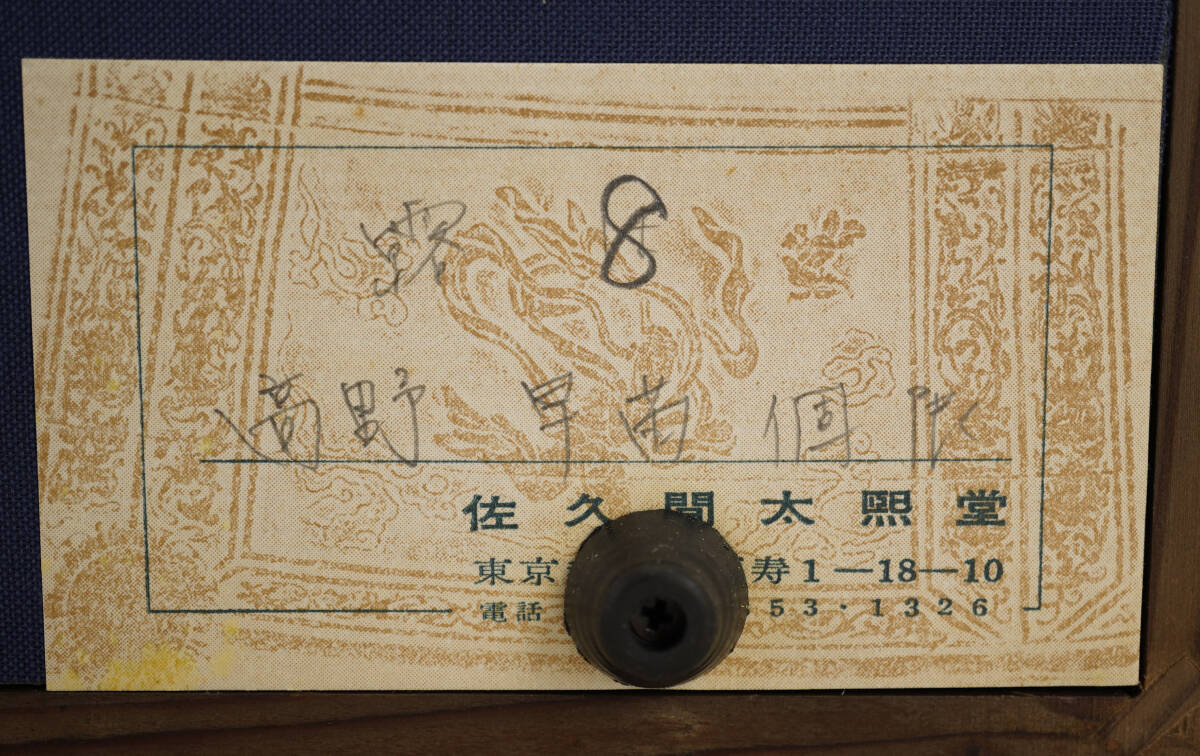 8
高野 早苗 個展
佐久間太熙堂
東京 寿1—18—10
電話 53・1326